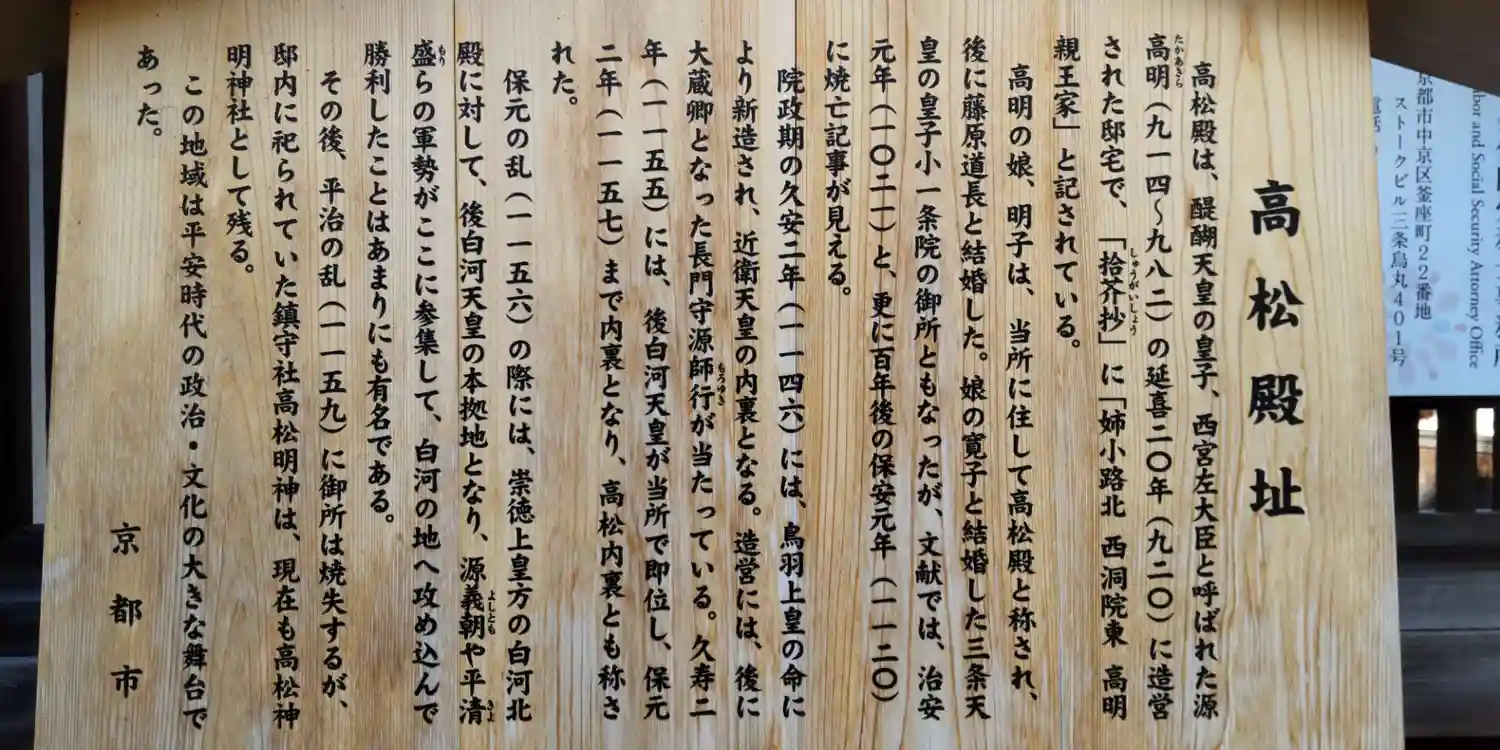 高松殿址
高松殿は、醍醐天皇の皇子、西宮左大臣と呼ばれた源
高明（九一四〜九八二）の延喜二〇年（九二〇）に造営
たかあきら
された邸宅で、「拾芥抄」に「姉小路北 西洞院東 高明
しゅうがいしょう
親王家」と記されている。
高明の娘、明子は、当所に住して高松殿と称され、
後に藤原道長と結婚した。娘の寛子と結婚した三条天
皇の皇子小一条院の御所ともなったが、文献では、治安
元年（一〇二一）と、更に百年後の保安元年（一一二〇）
に焼亡記事が見える。
院政期の久安二年（一一四六）には、鳥羽上皇の命に
より新造され、近衛天皇の内裏となる。造営には、後に
大蔵卿となった長門守源師行が当たっている。久寿二
もろゆき
年（一一五五）には、後白河天皇が当所で即位し、保元
二年（一一五七）まで内裏となり、高松内裏とも称さ
れた。
保元の乱（一一五六）の際には、崇徳上皇方の白河北
殿に対して、後白河天皇の本拠地となり、源義朝や平清
よしとも
きよ
盛らの軍勢がここに参集して、白河の地へ攻め込んで
もり
勝利したことはあまりにも有名である。
その後、平治の乱（一一五九）に御所は焼失するが、
邸内に祀られていた鎮守社高松明神は、現在も高松神
明神社として残る。
この地域は平安時代の政治・文化の大きな舞台で
あった。
京都市
abor and Social Security Attorney Office
京都市中京区釜座町22番地
ストークビル三条烏丸401号
電話